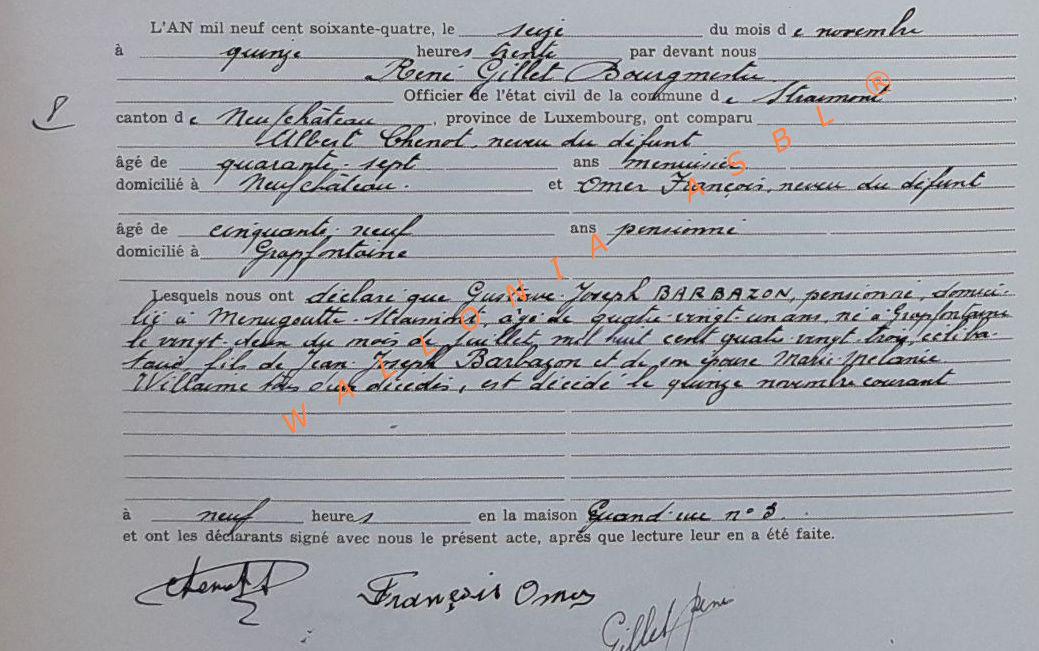 L'AN mil neuf cent soixante-quatre, le seize du mois de novembre
à quinze heures trente par devant nous
René Gillet Bourgmestre
Officier de l'état civil de la commune de Straimont
8
canton de Neufchâteau, province de Luxembourg, ont comparu
Albert Chenot, neveu du défunt
âgé de quarante-sept ans menuisier
domicilié à Neufchâteau. et Omer François, neveu du défunt
âgé de cinquante-neuf ans pensionné
domicilié à Grapfontaine
Lesquels nous ont déclaré que Gustave-Joseph BARBAZON, pensionné, domici-
lié à Menugoutte-Straimont, âgé de quatre-vingt-un ans, né à Grapfontaine
le vingt-deux du mois de juillet mil huit cent quatre-vingt trois, céliba-
taire, fils de Jean-Joseph Barbazon et de son épouse Marie Mélanie
Willaume tous deux décédés, est décédé le quinze novembre courant
à neuf heures en la maison Grand'rue n° 3.
et ont les déclarants signé avec nous le présent acte, après que lecture leur en a été faite.
Chenot A
François Omer
Gillet René
WALLONIA ASBL ®